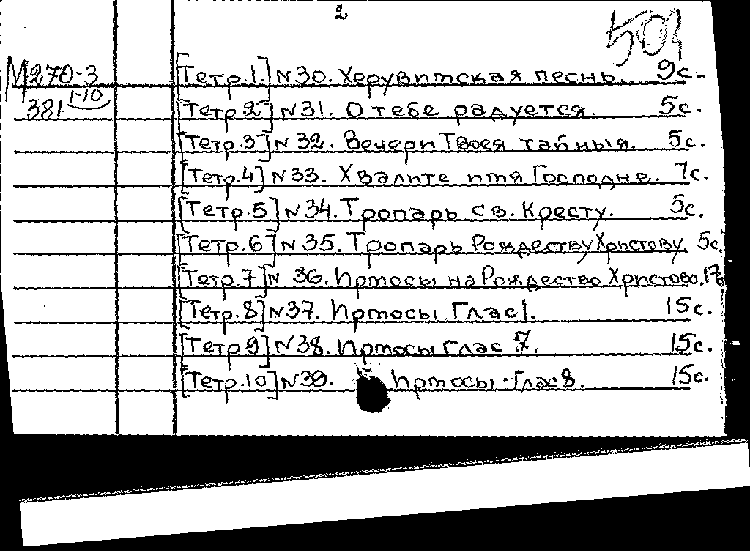 2
503
М270-3 [Тетр.1.] N30. Херувимская песнь. 9с.
381 1-10 [Тетр.2] N31. О тебе радуется. 5с.
[Тетр.3] N32. Вечери Твоея тайныя. 5с.
[Тетр.4] N33. Хвалите имя Господне. 7с.
[Тетр.5] N34. Тропарь св. Кресту. 5с.
[Тетр.6] N35. Тропарь Рождеству Христову. 5с.
[Тетр.7] N 36. Ирмосы на Рождество Христово.
[Тетр.8] N37. Ирмосы Глас 1. 15с.
[Тетр.9] N38. Ирмосы Глас 7. 15с.
[Тетр.10] N39. Ирмосы Глас 8. 15с.